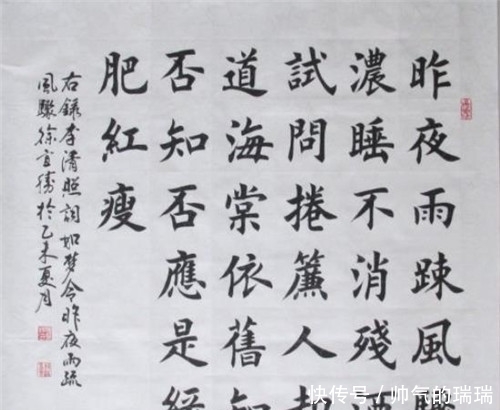 昨夜雨踈風驟
濃睡不消殘酒
試問捲簾人却
道海棠依舊知
否知否應是綠
肥紅瘦
右錄李清照詞如梦令昨夜雨疏
風驟徐於乙未夏月
快传号／帅气的瑞瑞